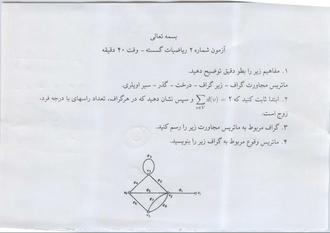 بسمه تعالی
آزمون شماره ۲ ریاضیات گسسته - وقت ۴۰ دقیقه
۱. مفاهیم زیر را بطور دقیق توضیح دهید.
ماتریس مجاورت گراف - زیر گراف - درخت - گذر - سیر اویلری.
۲. ابتدا ثابت کنید که ۲ = Σ d(v) v∈V و سپس نشان دهید که در هرگراف، تعداد راسهای با درجه فرد،
زوج است.
۳. گراف مربوط به ماتریس مجاورت زیر را رسم کنید.
۴. ماتریس وقوع مربوط به گراف زیر را بنویسید.